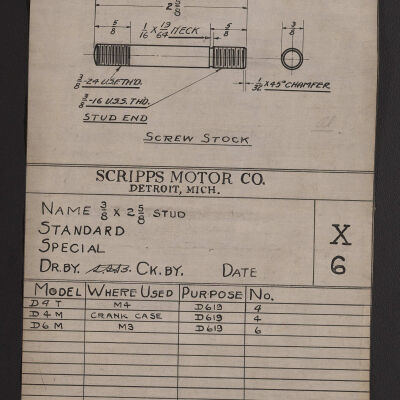 2 5/8
5/8 1/16 X 13/64 NECK 5/8 3/8
3/8-24 U.S.F. THD.
1/32 X 45° CHAMFER
3/8-16 U.S.S. THD.
STUD END
SCREW STOCK
SCRIPPS MOTOR CO.
DETROIT, MICH.
NAME 3/8 X 2 5/8 STUD
STANDARD
SPECIAL
X
6
DR. BY. CK. BY. DATE
MODEL WHERE USED PURPOSE NO.
D4T M4 D619 4
D4M CRANK CASE D619 4
D6M M3 D619 6